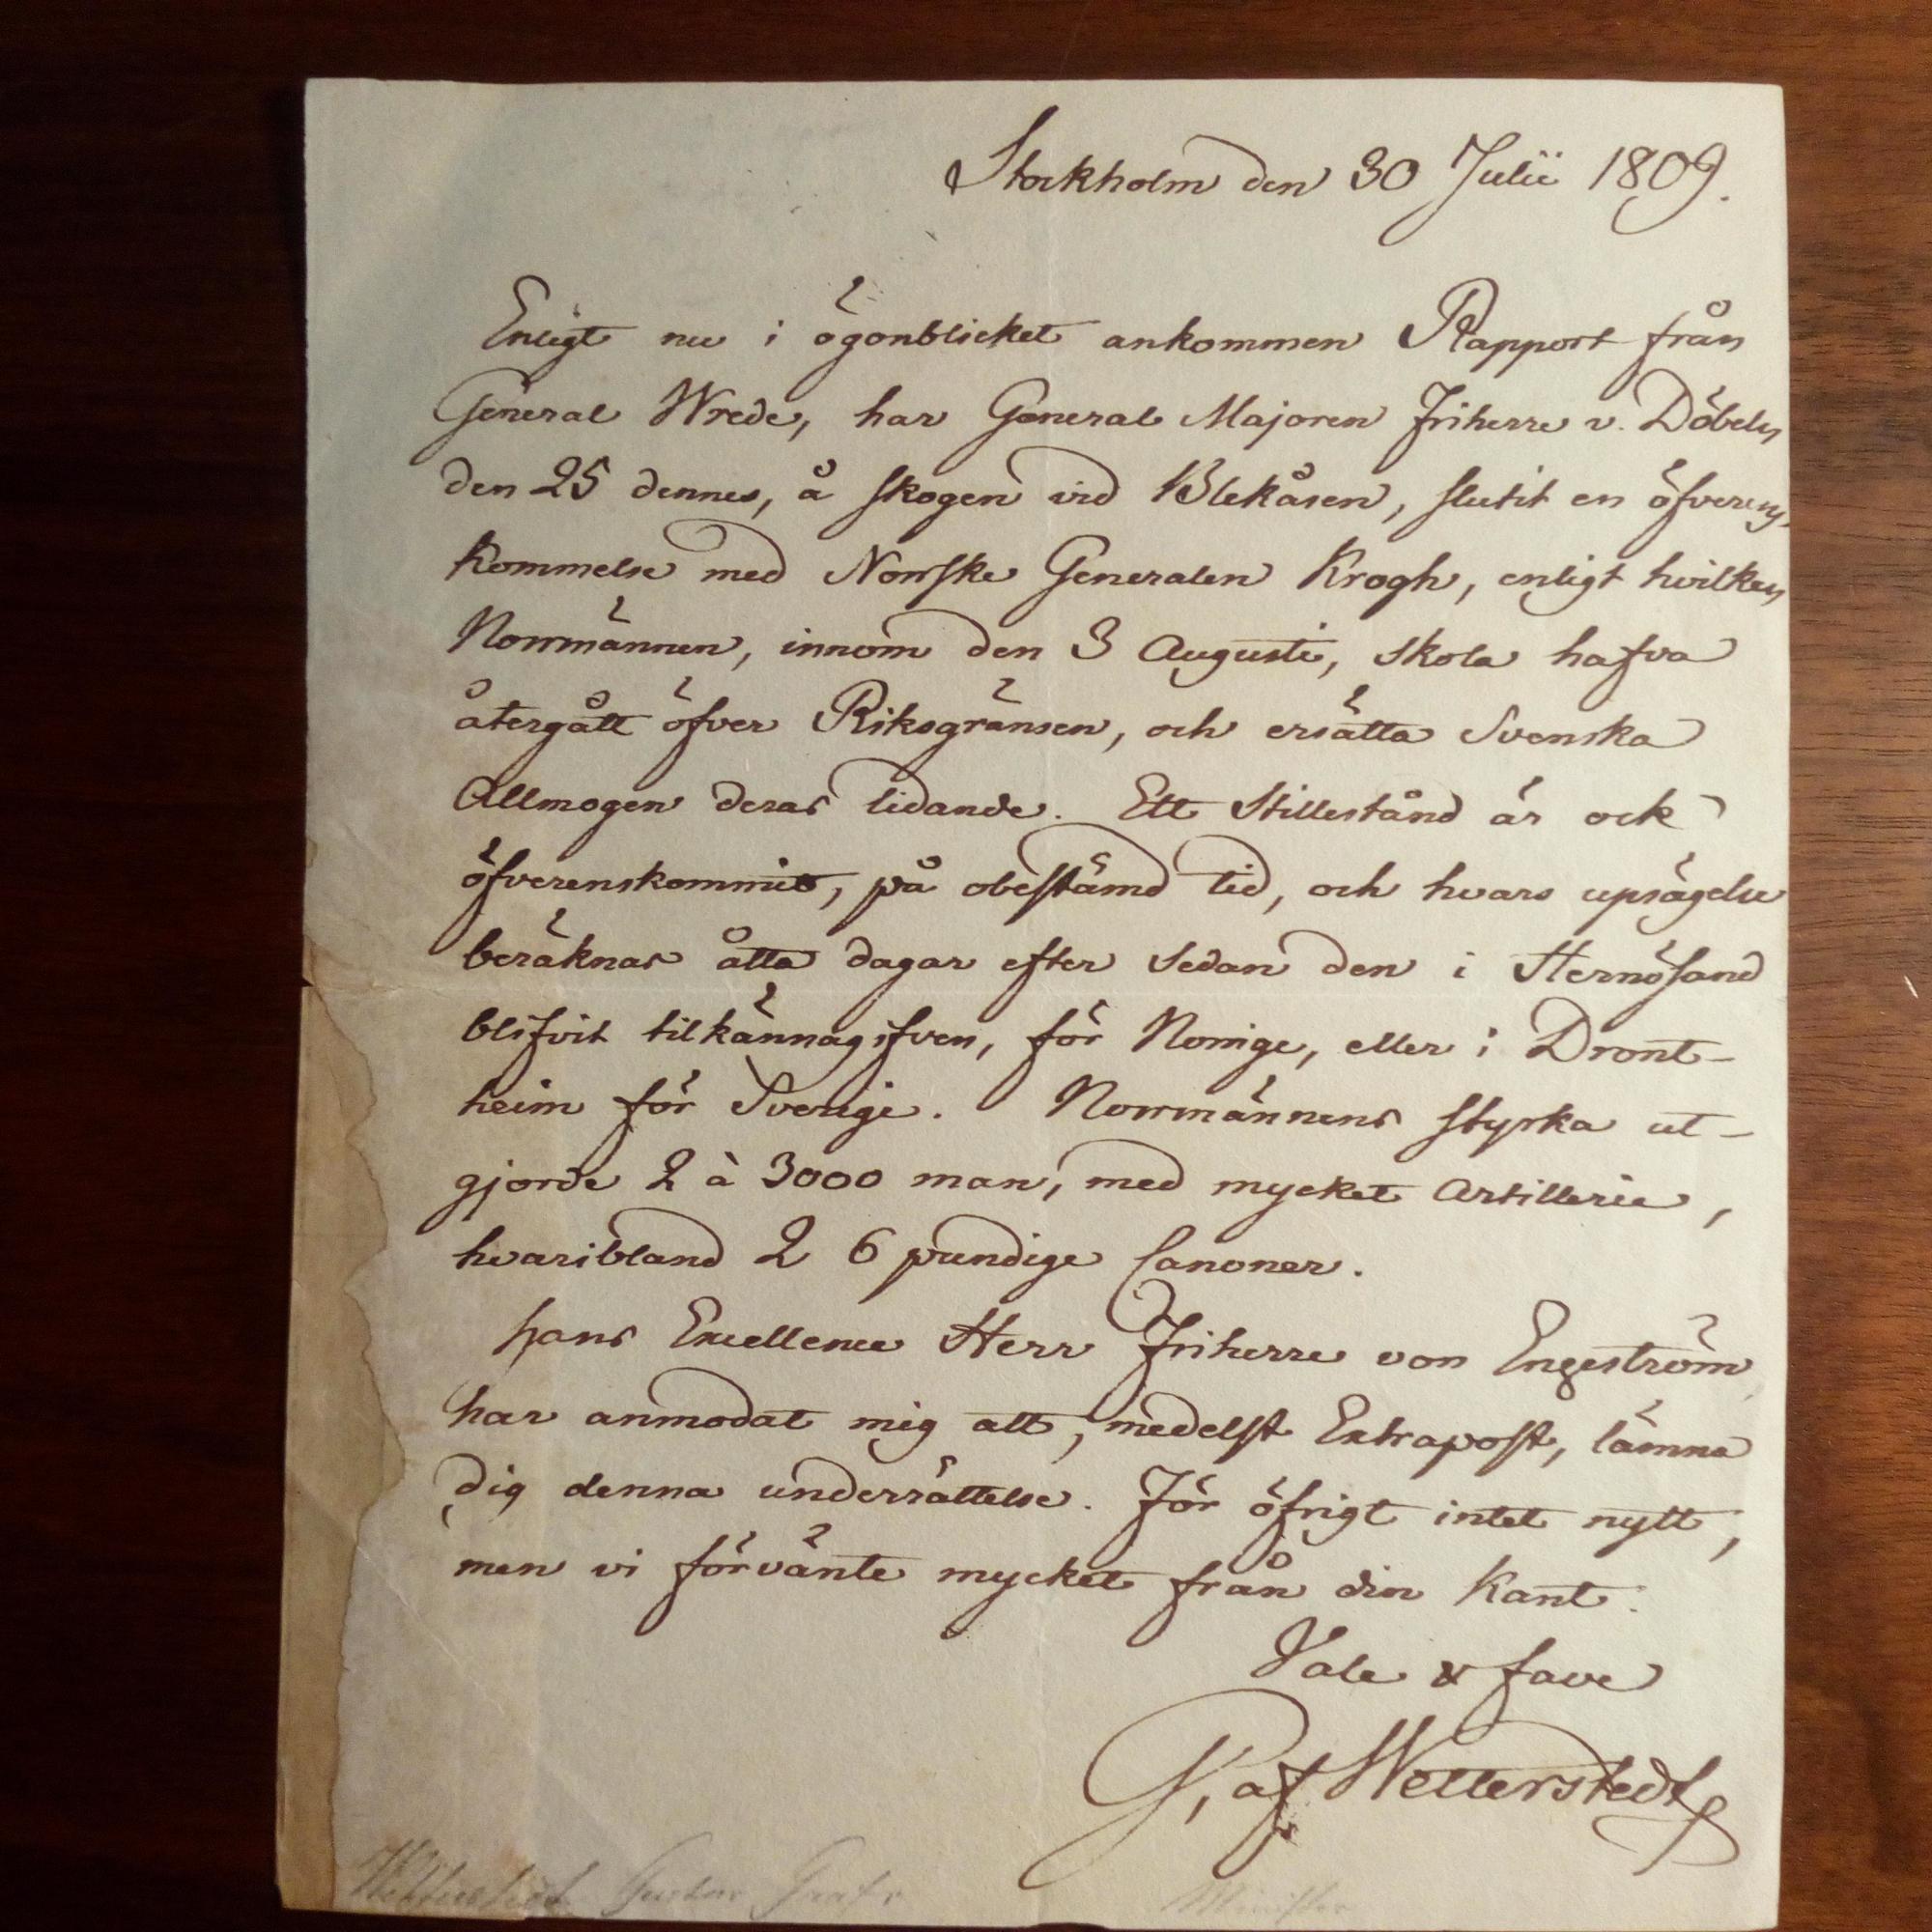 Stockholm den 30 Julii 1809.
Enligt nu i ögonblicket ankommen Rapport från
General Wrede, har General Majoren Friherre v. Döbeln
den 25 dennes, å skogen vid Blekåsen, slutit en öfverens
kommelse med Norske Generalen Krogh, enligt hvilken
Norrmännen, innom den 3 Augusti, skola hafva
återgått öfver Riksgränsen, och ersätta Svenska
Allmogen deras lidande. Ett Stillestånd är ock
öfverenskommit, på obestämd tid, och hvars upsägelse
beräknas åtta dagar efter sedan den i Hernösand
blifvit tilkännagifven, för Norrige, eller i Dront-
heim för Sverige. Norrmännens styrka ut-
gjorde 2 à 3000 man, med mycket Artillerie,
hvaribland 2 6 pundige Canoner.
Hans Excellence Herr Friherre von Engeström
har anmodat mig att, medelst Extrapost, lämna
dig denna underrättelse. För öfrigt intet nytt,
men vi förvänte mycket från din kant.
Vale & fave
G, af Wetterstedt
Wetterstedt Gustav Graf v.
Minister